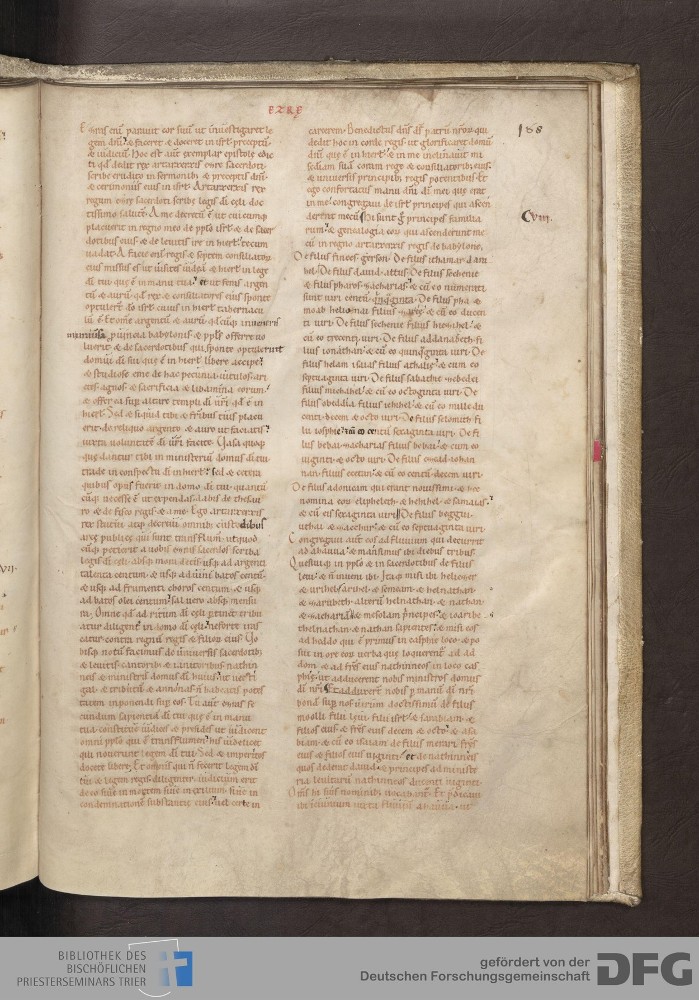 EZRE
Esdras enī parauit cor suū ut inuestigaret le
gem dnī. & faceret & doceret in isrł preceptū
& iudiciū. Hoc est aut exemplar epistolę edic
ti qd dedit rex artaxerxis esdrę sacerdoti.
scribę erudito in sermonibꝫ & preceptis dnī.
& cerimoniis eius in isrł. Artarxerxes rex
regum esdrę sacerdoti scribę legis dī cęli doc
tissimo salutē. A me decretū ē ut cuicumqꝫ
placuerit in regno meo de ppło isrł & de sacer
dotibus eius & de leuitis ire in hierłm tecum
uadat. A facie enī regis & septem consiliatorꝫ
eius missus es ut uisites iudęā & hierłm in lege
dī tui. quę ē in manu tua. et ut feras argen
tū & aurū. qd rex & consiliatores eius sponte
optulerūt dō isrł. cuius in hierłm tabernacu
lū ē. Et omē argentū & aurū. qdcūqꝫ inueneris
in uniuersa puincia babylonis. & ppłs offerre uo
luerit. & de sacerdotibus qui sponte optulerunt
domui dī sui. quę ē in hierłm. libere accipe.
& studiose eme de hac pecunia. uitulos. ari
etes. agnos. & sacrificia & libamina eorum.
& offer ea sup altare templi dī urī. qd ē in
hierłm. Sed & siquid tibi & fribus tuis placu
erit. de reliquo argento & auro ut faciatis.
iuxta uoluntatē dī urī facite. Uasa quoqꝫ
quę dantur tibi in ministeriū domus dī tui.
trade in conspectu dī in hierłm. sed & cetera
quibus opus fuerit in domo dī tui. quantū
cūqꝫ necesse ē ut expendas. dabis de thesau
ro & de fisco regis. & a me. Ego artaxerxes
rex statui atqꝫ decreui omnibꝫ custodibus
arcę publicę qui sunt trans flumē. ut quod
cūqꝫ petierit a uobis esdras sacerdos scriba
legis dī cęli. absqꝫ mora detis. usqꝫ ad argenti
talenta centum. & usqꝫ ad uini batos centū.
& usqꝫ ad frumenti choros centum. & usqꝫ
ad batos olei centum. sal uero absqꝫ mensu
ra. Omne qd ad ritum dī cęli ptinet tribu
atur diligent in domo dī cęli. ne forte iras
catur contra regnū regis & filiorꝫ eius. Uo
bisqꝫ notū facimus de uniuersis sacerdotibꝫ
& leuitis. cantoribꝫ & ianitoribus. nathin
neis & ministris domus dī huius. ut uecti
gal. & tributū & annonas n habeatis potes
tatem inponendi sup eos. Tu aut esdras se
cundum sapientiā dī tui. quę ē in manu
tua. constitue iudices & presides. ut iudicent
omni ppło qui ē trans flumen. his uidelicet
qui nouerunt legem dī tui. Sed & imperitos
docete libere. Et omnis qui n fecerit legem dī
tui & legem regis diligenter. iudicium erit
de eo siue in mortem siue in exilium. siue in
condemnationē substantię eius. uel certe in
carcerem. Benedictus dns ds patrū nrorꝫ. qui
dedit hoc in corde regis. ut glorificaret domū
dnī. quę ē in hierłm. & in me inclinauit mi
sediam suā coram rege & consiliatoribꝫ eius.
& uniuersis principibꝫ regis potentibus. Et
ego confortatus manu dnī dī mei quę erat
in me. congregaui de isrł principes qui ascen
derent mecū. Hi sunt g principes familia
rum. & genealogia eorꝫ qui ascenderunt me
cū in regno artaxerxis regis de babylone.
De filius finees. gersom. De filius ithamar. dani
hel. De filius dauid. attus. De filius sechenię
& filius pharos. zacharias. & cū eo numerati
sunt uiri centū quinquaginta. De filius phae
moab. helioenai filius zarę. & cū eo ducen
ti uiri. De filius sechenię. filius hiezihel. &
cū eo trecenti uiri. De filius addan. abeth fi
lius ionathan. & cū eo quinquaginta uiri. De
filius helam. isaias filius athalię. & cum eo
septuaginta uiri. De filius saphatię. zebedei
filius michahel. & cū eo octoginta uiri. De
filius ioab. obedia filius iehihel. & cū eo mille du
centi. decem & octo uiri. De filius selomith. fi
lius iosphię. & cū eo centū sexaginta uiri. De fi
lius bebai. zacharias filius bebai. & cum eo
uiginti & octo uiri. De filius ezgad. iohan
nan filius ecetan. & cū eo centū decem uiri.
De filius adonicam qui erant nouissimi. & hęc
nomina eorꝫ. elipheleth. & hehihel. & samaias.
& cū eis sexaginta uiri. De filius beggui.
uthai. & zacchur. & cū eo septuaginta uiri.
Congregaui aut eos ad fluuium qui decurrit
ad ahauua. & mansimus ibi diebus tribus.
Quesiuiqꝫ in ppło & in sacerdotibus de filius
leui. & n inueni ibi. Itaqꝫ misi ibi heliezer
& arihel. & semeam. & helnathan.
& iaribeth. & alterū helnathan. & nathan.
& zacharia. & mesolam principes. & ioaribe
thelnathan. & nathan sapientes. & misi eos
ad heddo qui ē primus in casphię loco. & po
sui in ore eorꝫ uerba quę loquerentur ad ad
dom & ad frēs eius nathinneos in loco cas
phię. ut adducerent nobis ministros domus
dī nrī. Et adduxerunt nobis p manū dī nrī
bonā sup nos. uirum doctissimū de filius
moolli. filii leui. filii isrł. & sarabiam. &
filios eius & frēs eius decem & octo. & asa
biam. & cū eo isaiam de filius merari frēs
eius & filios eius uiginti. et de nathinneis
quos dederat dauid & principes ad ministe
ria leuitarū nathinneos ducenti uiginti.
Omīs hi suis nominibꝫ uocabantur. Et pdicaui
ibi ieiunium iuxta fluuiū ahauua. ut
168
Cviii.
BIBLIOTHEK DES
BISCHÖFLICHEN
PRIESTERSEMINARS TRIER
gefördert von der
Deutschen Forschungsgemeinschaft
DFG